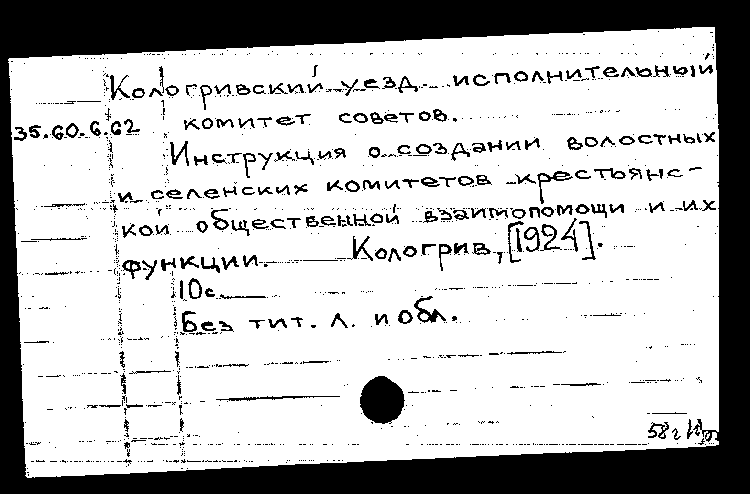 Кологривский уезд. исполнительный
35.60.6.62 комитет советов.
Инструкция о создании волостных
и селенских комитетов крестьянс-
кой общественной взаимопомощи и их
функции. Кологрив, [1924].
10с.
Без тит. л. и обл.
58г